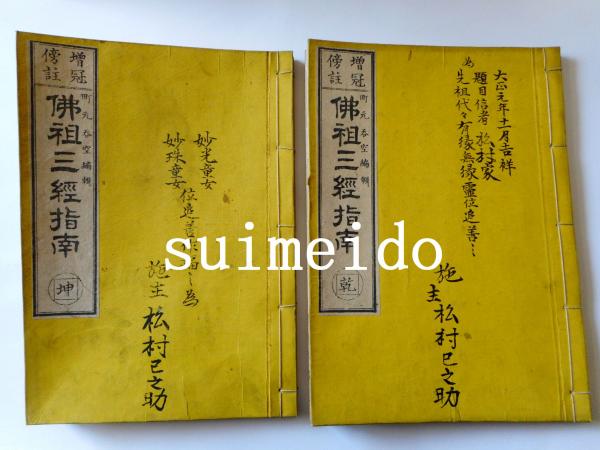 増冠
傍註
町元呑空編輯
佛祖三經指南
乾
大正元年十一月吉祥
為
題目信者
先祖代々有縁無縁霊位追善
施主松村巳之助
増冠
傍註
町元呑空編輯
佛祖三經指南
坤
妙光童女
妙珠童女
位追善
為
施主松村巳之助
suimeido